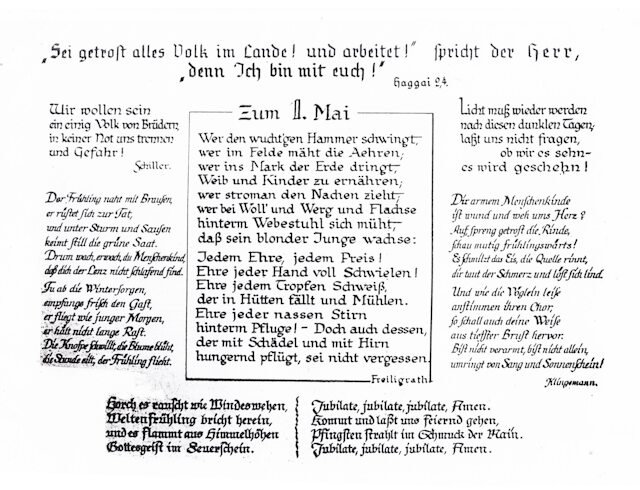 „Sei getrost alles Volk im Lande! und arbeitet!" spricht der Herr,
„denn Ich bin mit euch!"
Haggai 2,4.
Wir wollen sein
ein einig Volk von Brüdern,
in keiner Not uns trennen
und Gefahr!
Schiller.
Der Frühling naht mit Brausen,
er rüstet sich zur Tat,
und unter Sturm und Sausen
keimt still die grüne Saat.
Drum wach, erwach, du Menschenkind,
daß dich der Lenz nicht schlafend find.
Tu ab die Wintersorgen,
empfange frisch den Gast,
er fliegt wie junger Morgen,
er hält nicht lange Rast.
Die Knospe schwillt, die Blume blüht,
die Stunde eilt, der Frühling flieht.
Zum 1. Mai
Wer den wucht'gen Hammer schwingt,
wer im Felde mäht die Aehren,
wer ins Mark der Erde dringt,
Weib und Kinder zu ernähren,
wer stroman den Nachen zieht,
wer bei Woll' und Werg und Flachse
hinterm Webestuhl sich müht,
daß sein blonder Junge wachse:
Jedem Ehre, jedem Preis!
Ehre jeder Hand voll Schwielen!
Ehre jedem Tropfen Schweiß,
der in Hütten fällt und Mühlen.
Ehre jeder nassen Stirn
hinterm Pfluge! - Doch auch dessen,
der mit Schädel und mit Hirn
hungernd pflügt, sei nicht vergessen.
Freiligrath
Licht muß wieder werden
nach diesen dunklen Tagen,
laßt uns nicht fragen,
ob wir es sehn-
es wird geschehn!
Dir armem Menschenkinde
ist wund und weh ums Herz?
Auf, spreng getrost die Rinde,
schau mutig frühlingswärts!
Es schmilzt das Eis, die Quelle rinnt,
die taut der Schmerz und löst sich lind.
Und wie die Vöglein leise
anstimmen ihren Chor,
so schall auch deine Weise
aus tiefster Brust hervor.
Bist nicht verarmt, bist nicht allein,
umringt von Sang und Sonnenschein!
Klingemann.
Horch es rauscht wie Windeswehen,
Weltenfrühling bricht herein,
und es flammt aus Himmelhöhen
Gottesgeist im Feuerschein.
Jubilate, jubilate, jubilate, Amen.
Kommt und laßt uns feiernd gehen,
Pfingsten strahlt im Schmuck der Maien.
Jubilate, jubilate, jubilate, Amen.